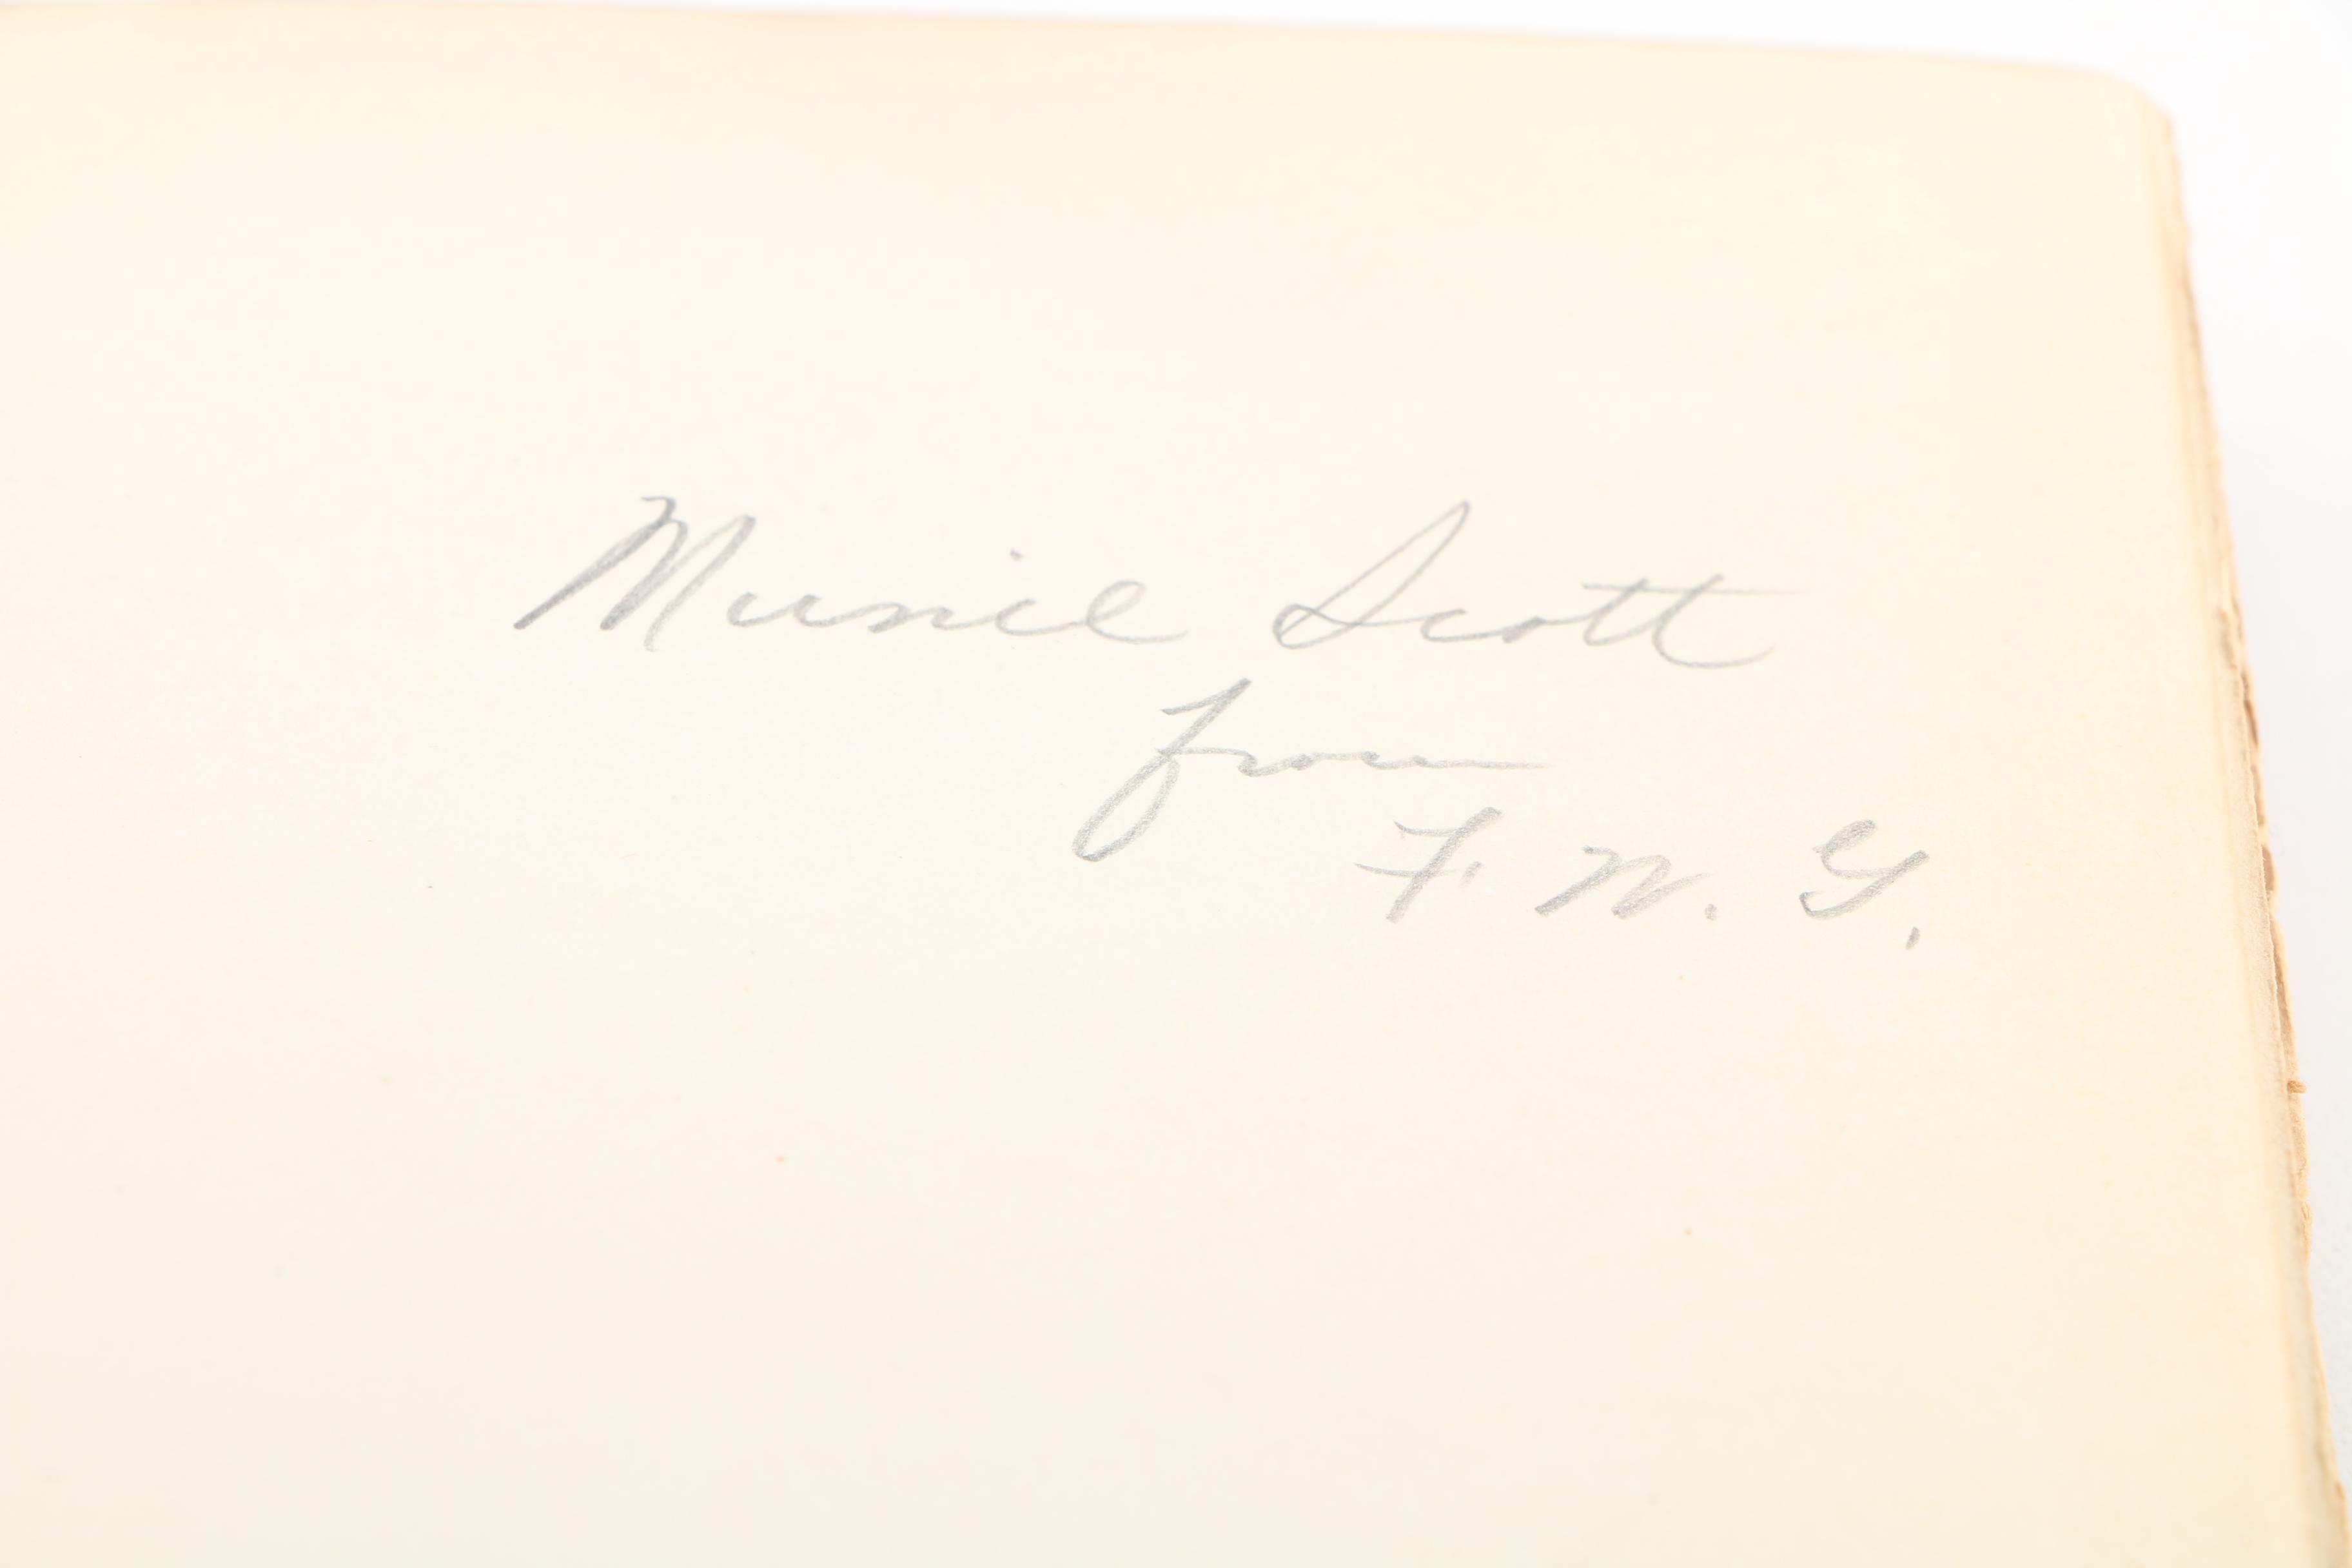 Muriel Scott
from
F. W. G.